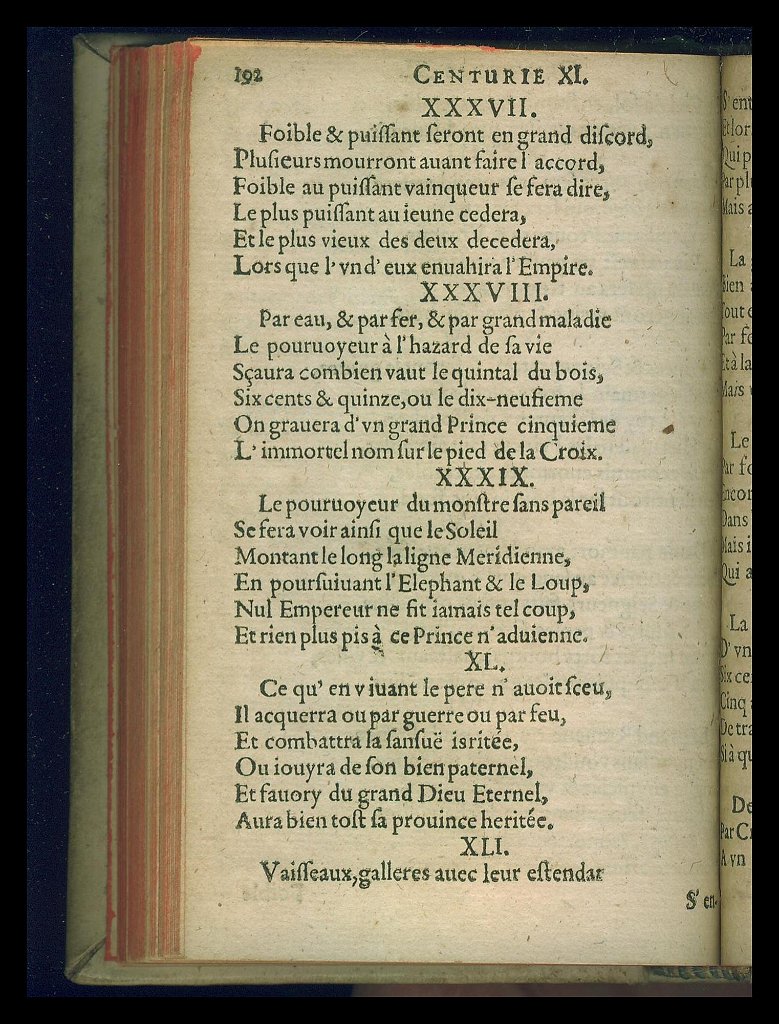 192 CENTURIE XI.
XXXVII.
Foible & puiſſant ſeront en grand diſcord,
Pluſieurs mourront auant faire l' accord,
Foible au puiſſant vainqueur ſe fera dire,
Le plus puiſſant au ieune cedera,
Et le plus vieux des deux decedera,
Lors que l' vn d' eux enuahira l' Empire.
XXXVIII.
Par eau, & par fer, & par grand maladie
Le pouruoyeur à l' hazard de ſa vie
Sçaura combien vaut le quintal du bois,
Six cents & quinze, ou le dix-neufieme
On grauera d' vn grand Prince cinquieme
L' immortel nom ſur le pied de la Croix.
XXXIX.
Le pouruoyeur du monſtre ſans pareil
Se fera voir ainſi que le Soleil
Montant le long la ligne Meridienne,
En pourſuiuant l' Elephant & le Loup,
Nul Empereur ne fit iamais tel coup,
Et rien plus pis à ce Prince n' aduienne.
XL.
Ce qu' en viuant le pere n' auoit ſceu,
Il acquerra ou par guerre ou par feu,
Et combattra la ſanſuë isritée,
Ou iouyra de ſon bien paternel,
Et favory du grand Dieu Eternel,
Aura bien toſt ſa prouince heritée.
XLI.
Vaiſſeaux, galleres auec leur eſtendar
S' en-